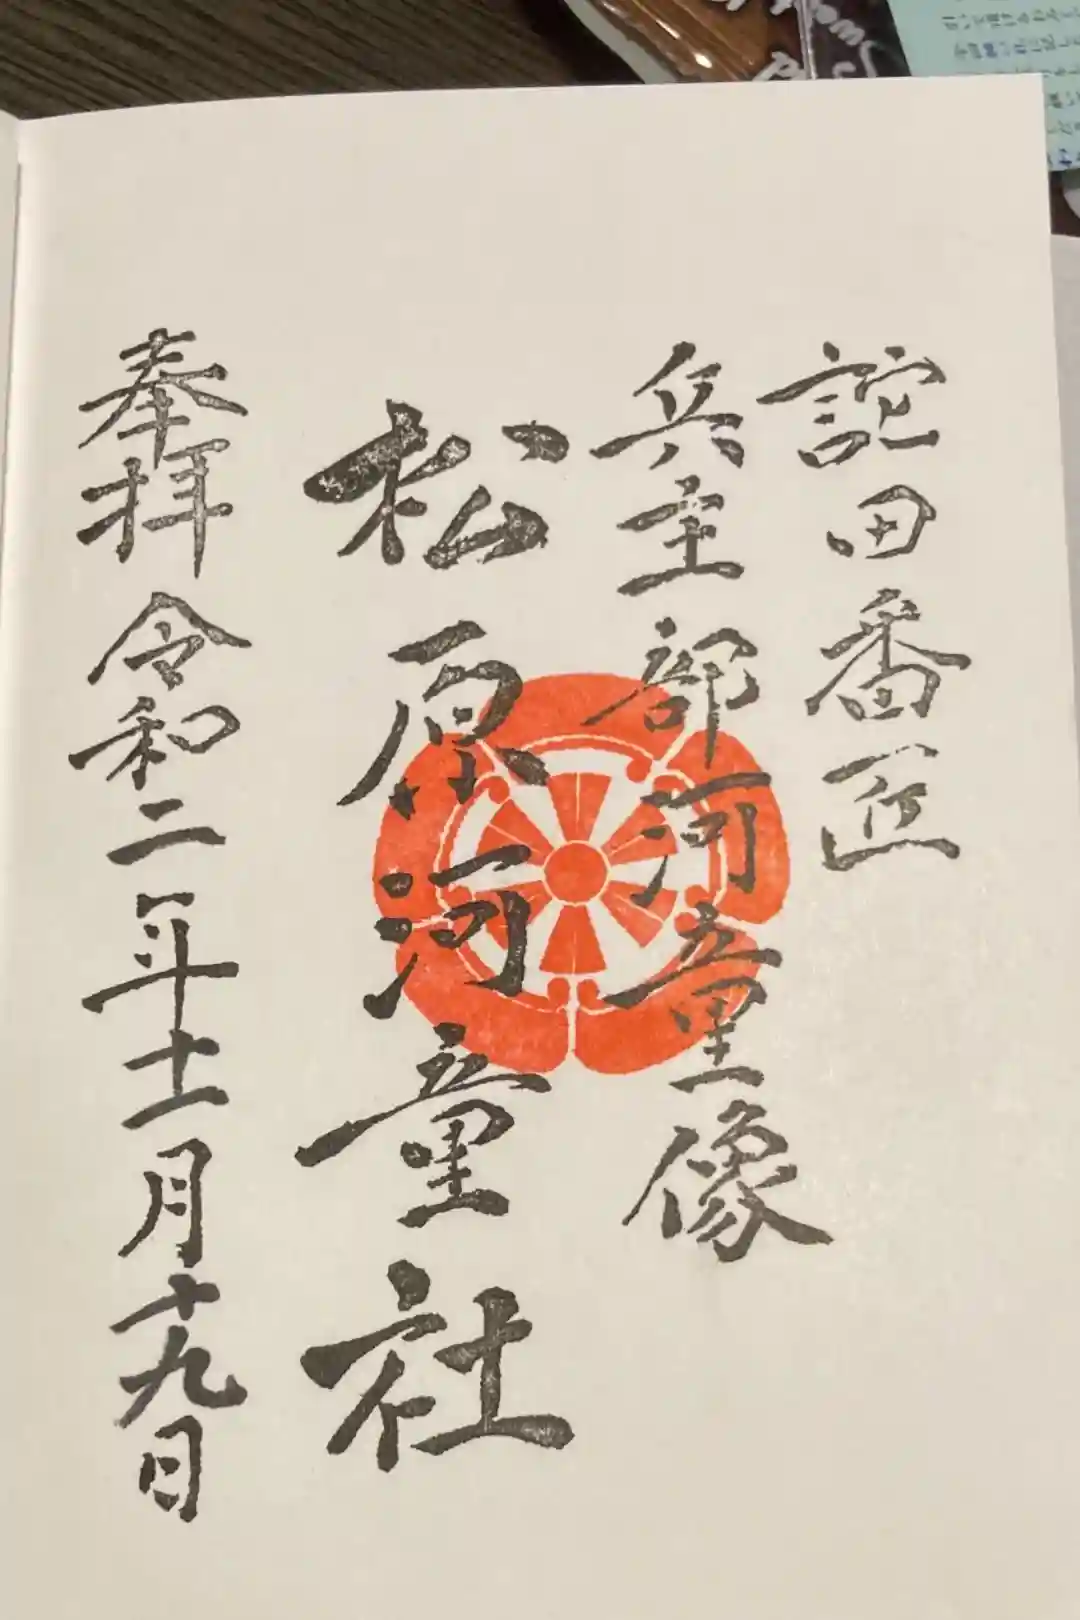 詑田番匠
兵主部河童像
松原河童社
奉拝 令和二年十一月十九日